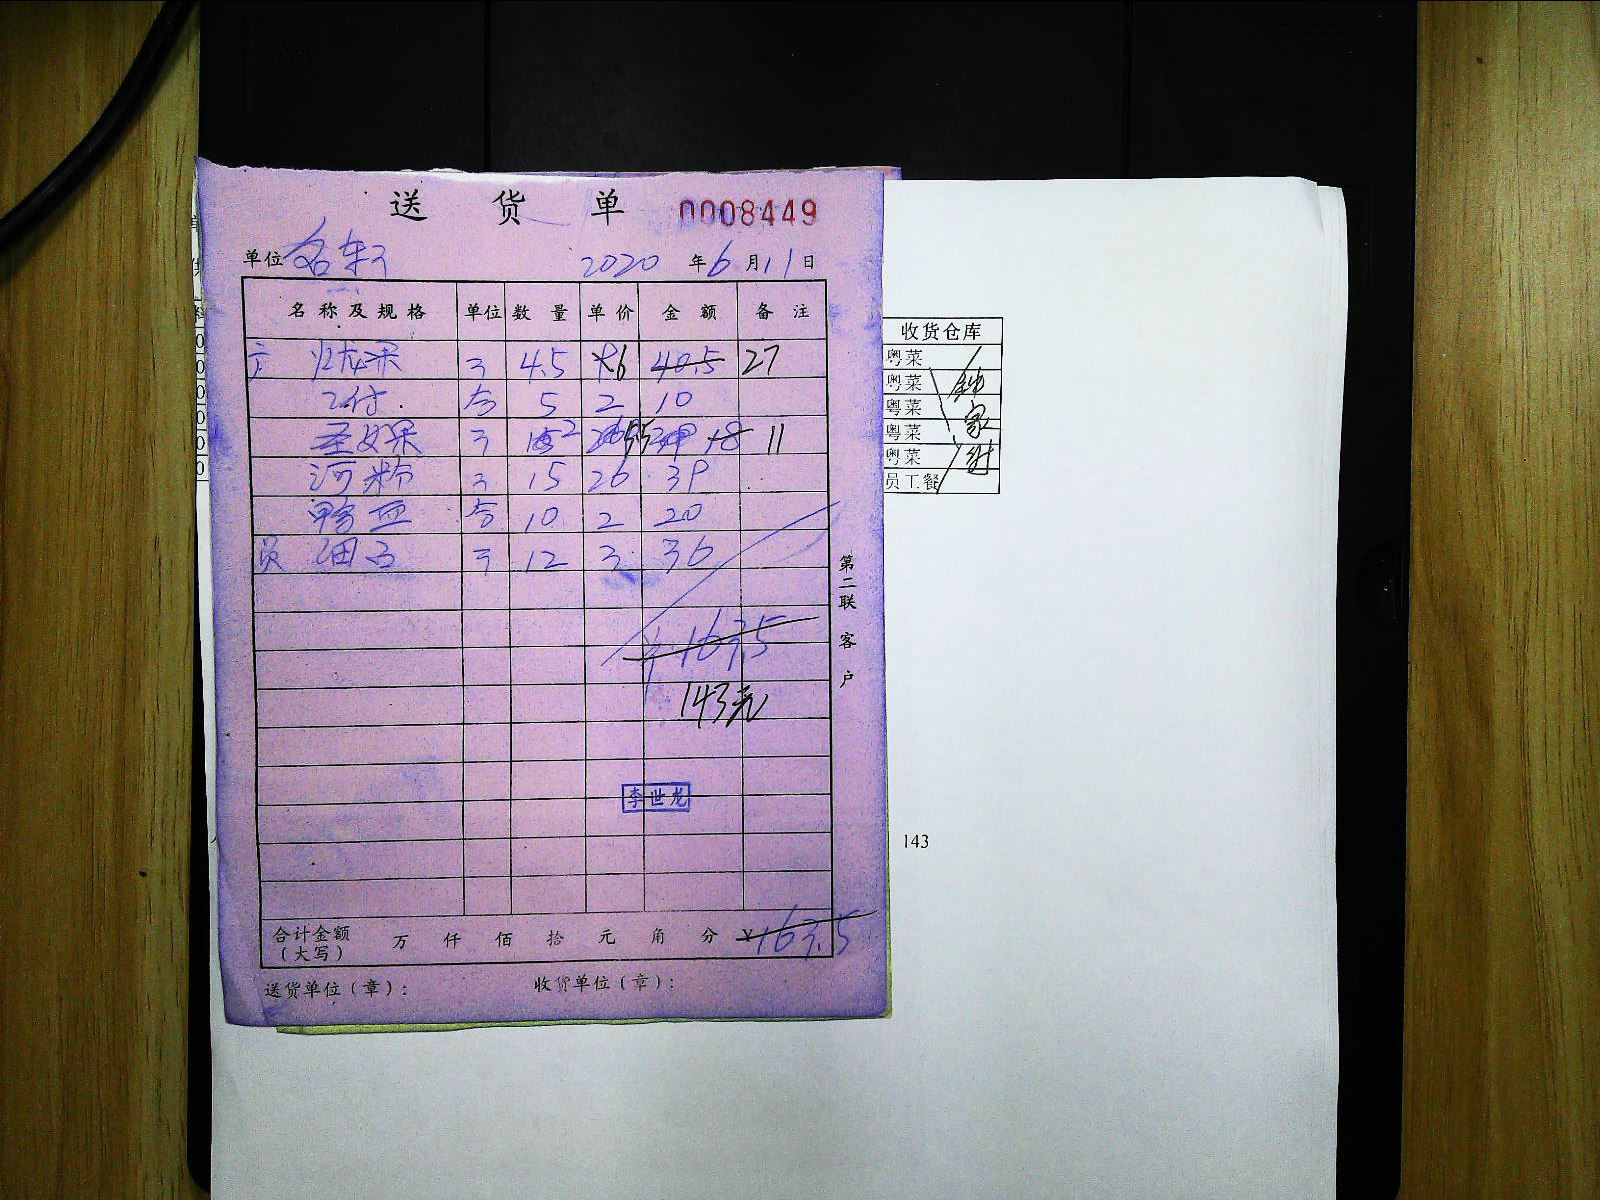 送货单 0008449
单位 名轩 2020年6月11日
名称及规格 单位 数量 单价 金额 备注
火龙果 4.5 6 40.5 27
5 2 10
圣女果 2 5.5 18 11
河粉 15 26 39
鸭血 10 2 20
员 12 3 36
¥163.5
143元
李世龙
合计金额 万 仟 佰 拾 元 角 分 ¥163.5
(大写)
送货单位(章): 收货单位(章):
第二联 客户
收货仓库
粤菜
粤菜
粤菜
粤菜
粤菜
员工餐
143